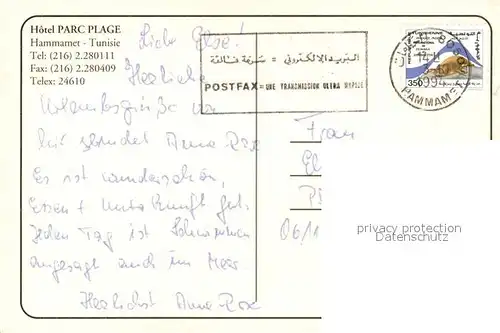 Hôtel PARC PLAGE
Hammamet - Tunisie
Tel: (216) 2.280111
Fax: (216) 2.280409
Telex: 24610
Liebe Else!
Herzliche
Urlaubsgrüße von
hier sendet Anna Rose
Es ist wunderschön,
Essen + Unterkunft gut.
Jeden Tag ist Schwimmen
angesagt auch im Meer
Herzlichst Anna Rose
البريد الالكتروني = سرعة فائقة
POSTFAX = UNE TRANSMISSION ULTRA RAPIDE
14-11
994
HAMMAMET
350
Frau
El
06/11
privacy protection
Datenschutz